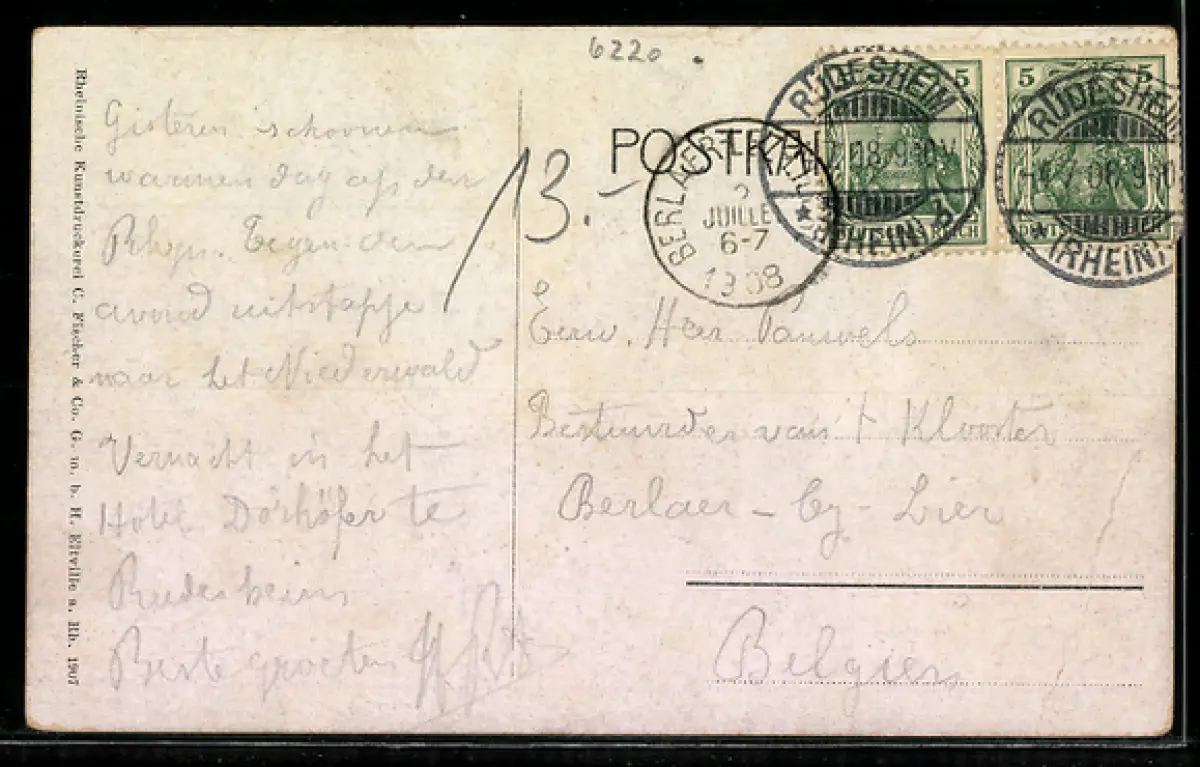 6220
Rheinische Kunstdruckerei C. Fischer & Co. G. m. b. H. Eltville a. Rh. 1907
Gisteren schoonen
warmen dag op den
Rhyn. Tegen den
avond uitstapje
naar het Niederwald
Vernacht in het
Hotel Dorhöfer te
Rudesheim
Beste groeten
13.-
POSTKA
BERLAER
2
JUILLET
6-7
1908
5 5
RÜDESHEIM
7.08.9-10V
*(RHEIN)
REICH
5 5
RÜDESHEIM
7.08.9-10
*(RHEIN)
DEUTSCHES REICH
Eerw. Heer Pauwels
Bestuurder van 't Klooster
Berlaer - by - Lier
Belgien